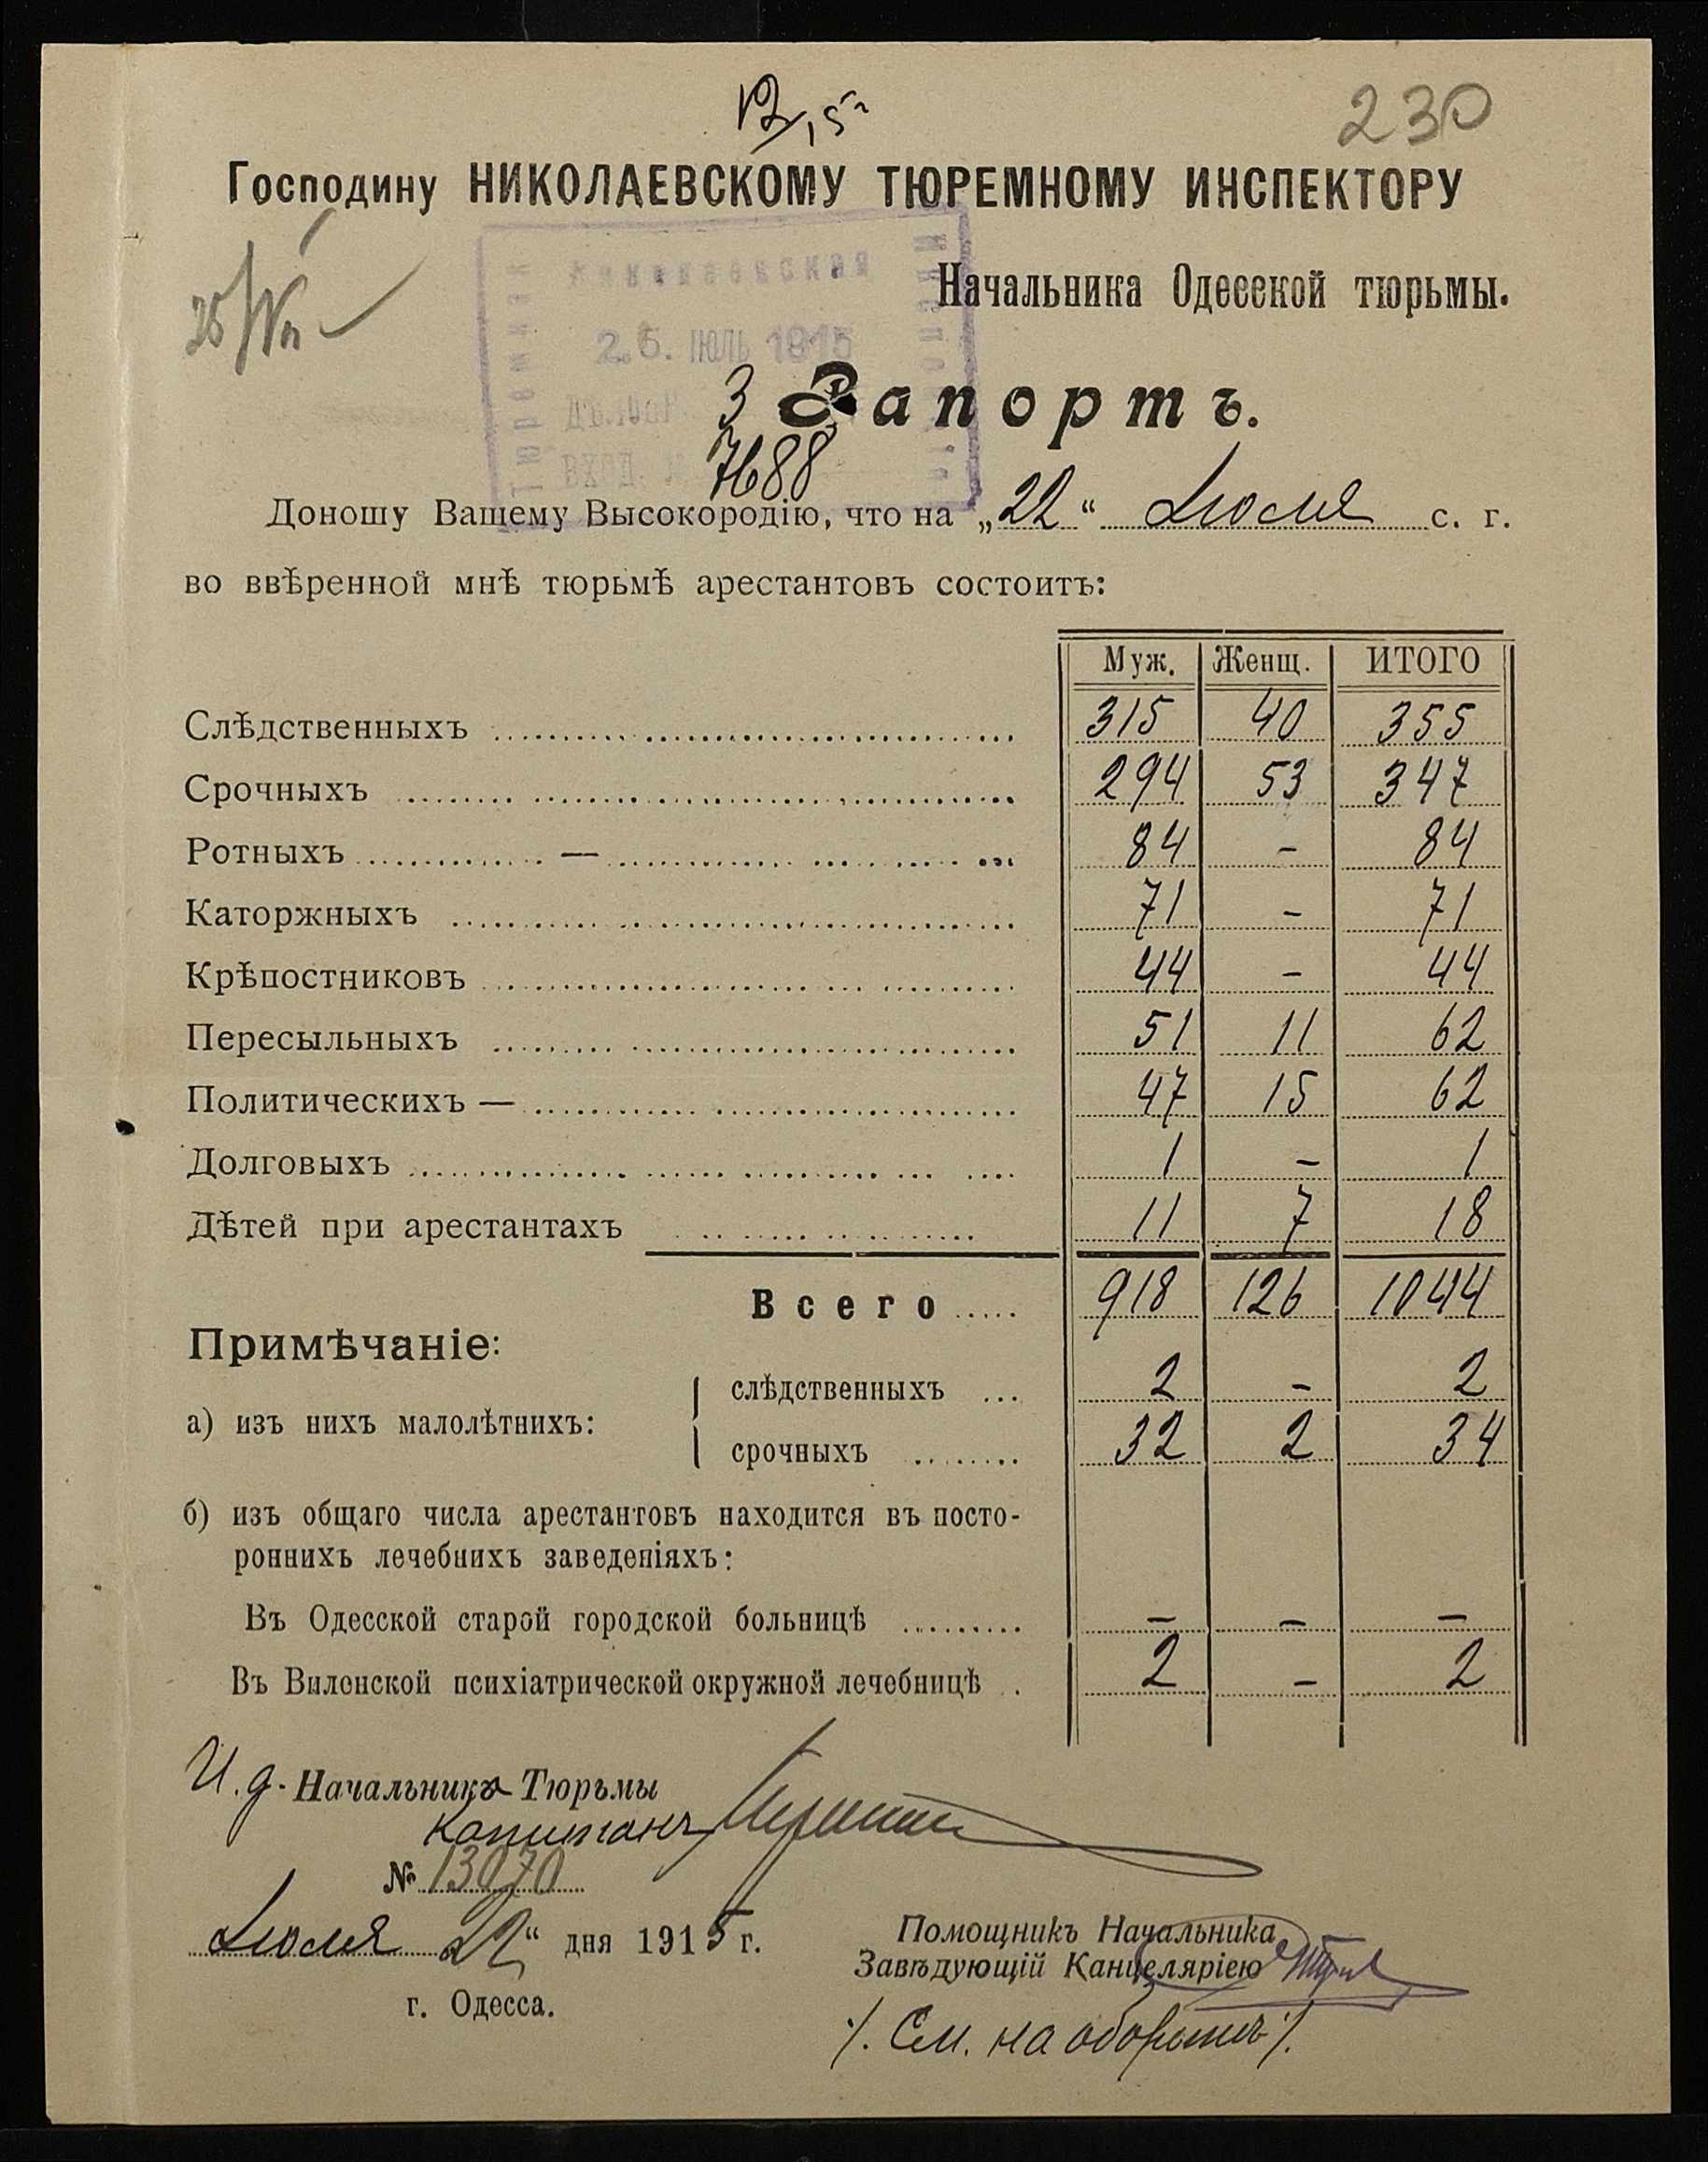 12/15 г
230
Господину НИКОЛАЕВСКОМУ ТЮРЕМНОМУ ИНСПЕКТОРУ
Начальника Одесской тюрьмы.
Николаевская
Тюремная
25. ІЮЛЬ 1915
ВХОД.
3
7688
Рапортъ.
Доношу Вашему Высокородію, что на „22“ Іюля с. г.
во ввѣренной мнѣ тюрьмѣ арестантовъ состоитъ:
Муж. Женщ. ИТОГО
Слѣдственныхъ 315 40 355
Срочныхъ 294 53 347
Ротныхъ — 84 - 84
Каторжныхъ 71 - 71
Крѣпостниковъ 44 - 44
Пересыльныхъ 51 11 62
Политическихъ — 47 15 62
Долговыхъ 1 - 1
Дѣтей при арестантахъ 11 7 18
Всего 918 126 1044
Примѣчаніе:
а) изъ нихъ малолѣтнихъ:
слѣдственныхъ 2 - 2
срочныхъ 32 2 34
б) изъ общаго числа арестантовъ находится въ посто-
роннихъ лечебнихъ заведеніяхъ:
Въ Одесской старой городской больницѣ — — —
Въ Виленской психіатрической окружной лечебницѣ 2 - 2
И. д. Начальника Тюрьмы
Капитанъ
№ 13070
Іюля 22“ дня 1915 г.
г. Одесса.
Помощникъ Начальника
Завѣдующій Канцеляріею
./. См. на оборотѣ ./.